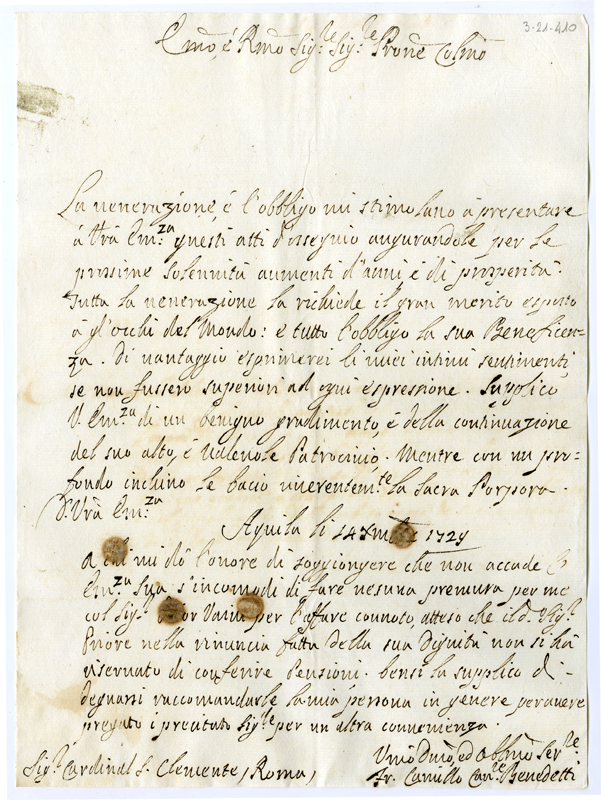 3-21-410
Emo, é Rmo Sig.re Sig.re Prone Colmo
La venerazione, é l'obbligo mi stimolano á presentare
á Vra Em.za questi atti d'ossequio augurandole per le
prossime solennitá aumenti d'anni é di prosperitá.
Tutta la venerazione la richiede il gran merito esposto
á gl'occhi del Mondo: e tutto l'obbligo la sua Beneficen-
za. Di vantaggio esprimerei li miei intimi sentimenti,
se non fussero superiori ad ogni espressione. Supplico
V. Em.za di un benigno gradimento, é della continuazione
del suo alto, é valevole Patrocinio. Mentre con un pro-
fondo inchino le bacio riverentem.te la Sacra Porpora.
D. Vra Em.za
Aquila li 14 1729
A chi mi dó l'onore di soggiongere che non accade
Em.za Sua s'incomodi di fare nesuna premura per me
col Sig. per l'affare connoto, atteso che il d.
Priore nella rinuncia fatta della sua Dignitá non si há
riservato di conferire Pensioni. bensi la supplico di
degnarsi raccomandarle la mia persona in genere per avere
pregato i precitato Sig.re per un altra convenienza.
Sig. Cardinal S. Clemente (Roma)
Umo Dmo, ed Obbmo Ser.re
Fr. Camillo Can.co Benedetti